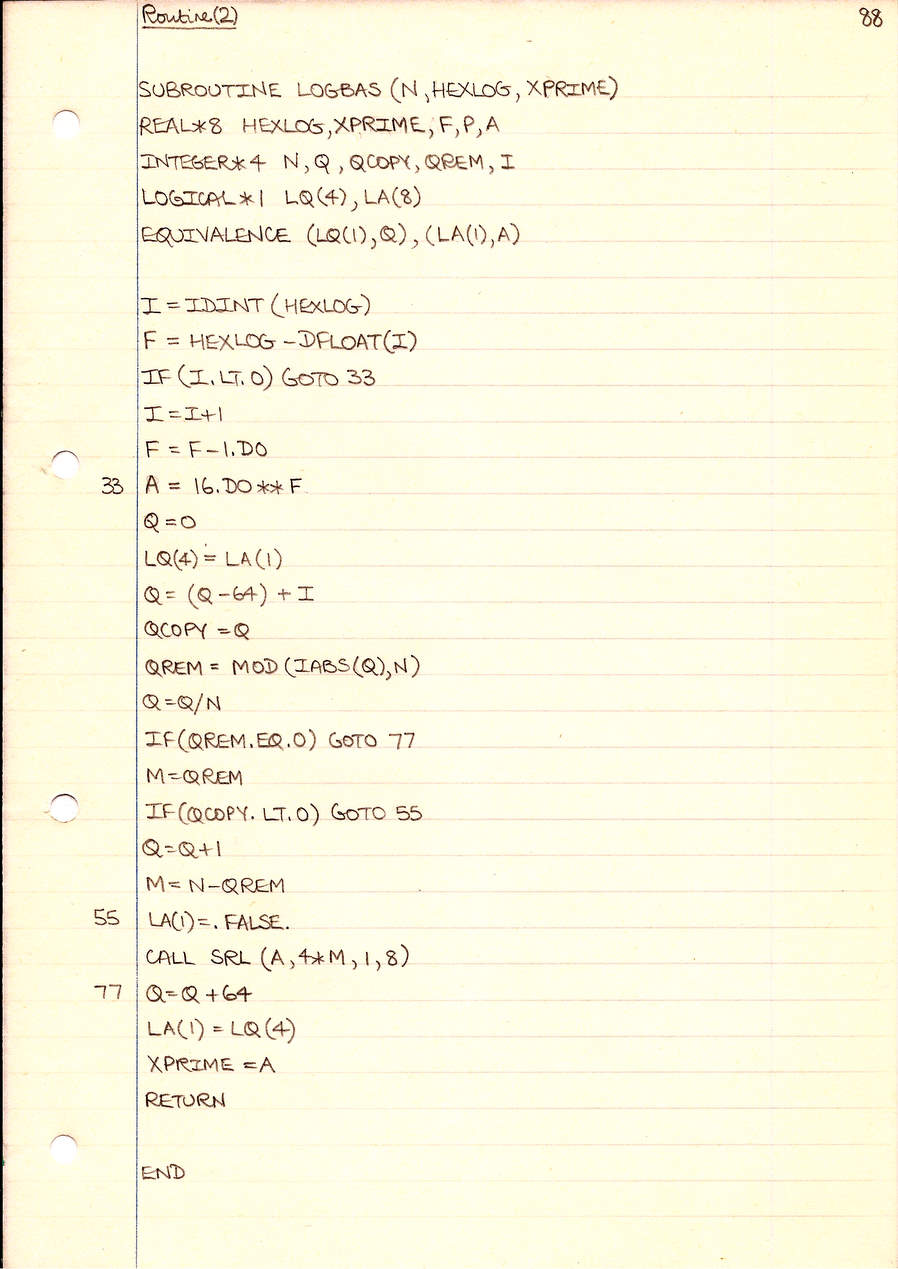 Routine(2) 88
SUBROUTINE LOGBAS (N,HEXLOG,XPRIME)
REAL*8 HEXLOG,XPRIME,F,P,A
INTEGER*4 N,Q,QCOPY,QREM,I
LOGICAL*1 LQ(4),LA(8)
EQUIVALENCE (LQ(1),Q),(LA(1),A)
I=IDINT(HEXLOG)
F = HEXLOG-DFLOAT(I)
IF(I.LT.0) GOTO 33
I=I+1
F = F-1.D0
33 A = 16.D0**F
Q=0
LQ(4)=LA(1)
Q= (Q-64)+I
QCOPY=Q
QREM= MOD(IABS(Q),N)
Q=Q/N
IF(QREM.EQ.0) GOTO 77
M=QREM
IF(QCOPY.LT.0) GOTO 55
Q=Q+1
M= N-QREM
55 LA(1)=.FALSE.
CALL SRL (A,4*M,1,8)
77 Q=Q+64
LA(1)=LQ(4)
XPRIME=A
RETURN
END